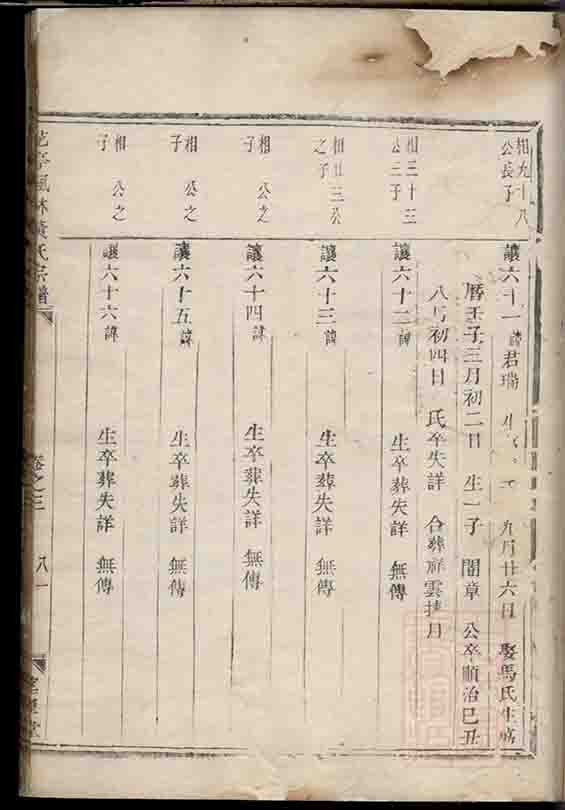 相九十八
公長子
讓六十一諱君瑞 生 九月廿六日 娶馬氏生
曆壬子三月初二日 生一子 闇章 公卒順治己丑
八月初四日 氏卒失詳 合葬 雲 月
相三十三
公三子
讓六十二諱 生卒葬失詳 無傳
相廿三公
之子
讓六十三諱 生卒葬失詳 無傳
相 公之
子
讓六十四諱 生卒葬失詳 無傳
相 公之
子
讓六十五諱 生卒葬失詳 無傳
相 公之
子
讓六十六諱 生卒葬失詳 無傳
黃氏宗譜
卷之三
八一
堂